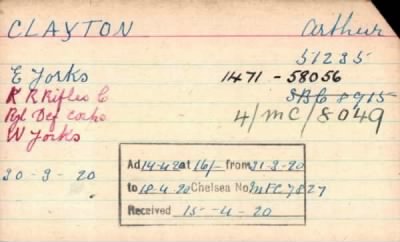 CLAYTON Arthur
51235
E Yorks 1471 - 58056
K R Rifles C
Ryl Def Corps 4/MC/8049
W Yorks
30-3-20
Ad 14-4-20 at 16/- from 31-3-20
to 18-4-20 Chelsea No MFC 7827
Received 15-4-20